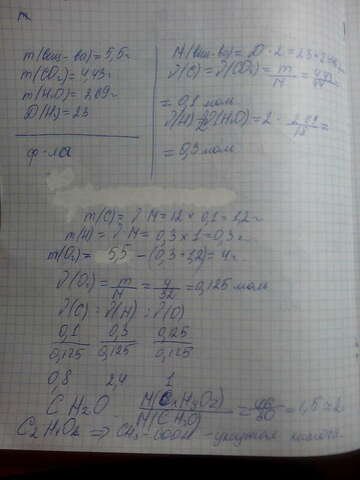 m(вещ-ва) = 5,5г
m(CO₂) = 4,43г
m(H₂O) = 2,69г
D(H₂) = 23
ф-ла
M(вещ-ва) = D · 2 = 23 · 2
ν(C) = ν(CO₂) = m/M = 4,43/44 =
= 0,1 моль
ν(H) = 2ν(H₂O) = 2 ·
= 0,3 моль
m(C) = ν · M = 12 × 0,1 = 1,2г
m(H) = ν · M = 0,3 × 1 = 0,3г
m(O₂) = 5,5 - (0,3 + 1,2) = 4г
ν(O₂) = m/M = 4/32 = 0,125 моль
ν(C) : ν(H) : ν(O)
0,1/0,125 0,3/0,125 0,125/0,125
0,8 2,4 1
CH₂O M(CₓHᵧO₂)/M(CH₂O) = 46/30 = 1,5 ≈ 2
C₂H₄O₂ ⇒ CH₃-COOH - уксусная кислота